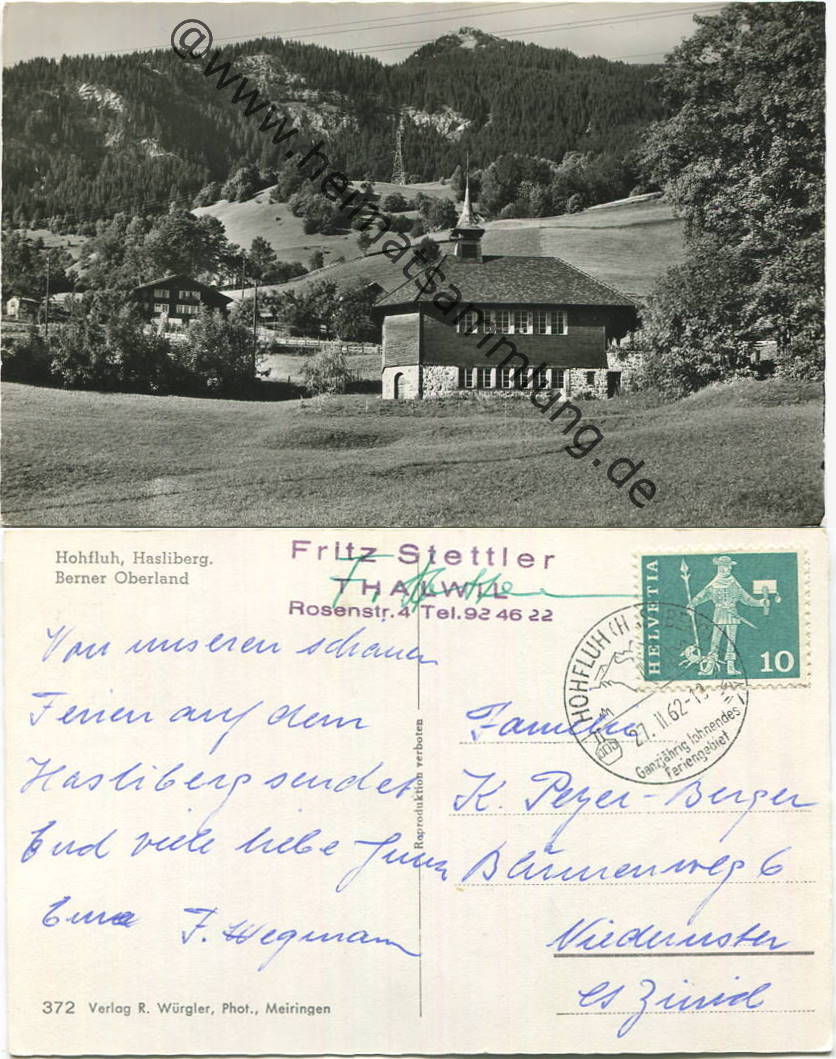 @www.hermatsammlung.de
Hohfluh, Hasliberg.
Berner Oberland
Fritz Stettler
THALWIL
Rosenstr. 4 Tel. 92 46 22
HELVETIA
10
HOHFLUH
27.II.62-18
Ganzjährig lohnendes
Feriengebiet
Von unseren schauen
Ferien auf dem
Hasliberg sendet
Eud viele liebe
F. Wegmann
Reproduktion verboten
Familie
K. Peyer-Berger
Blumenweg 6
Niederuster
Zürich
372 Verlag R. Würgler, Phot., Meiringen